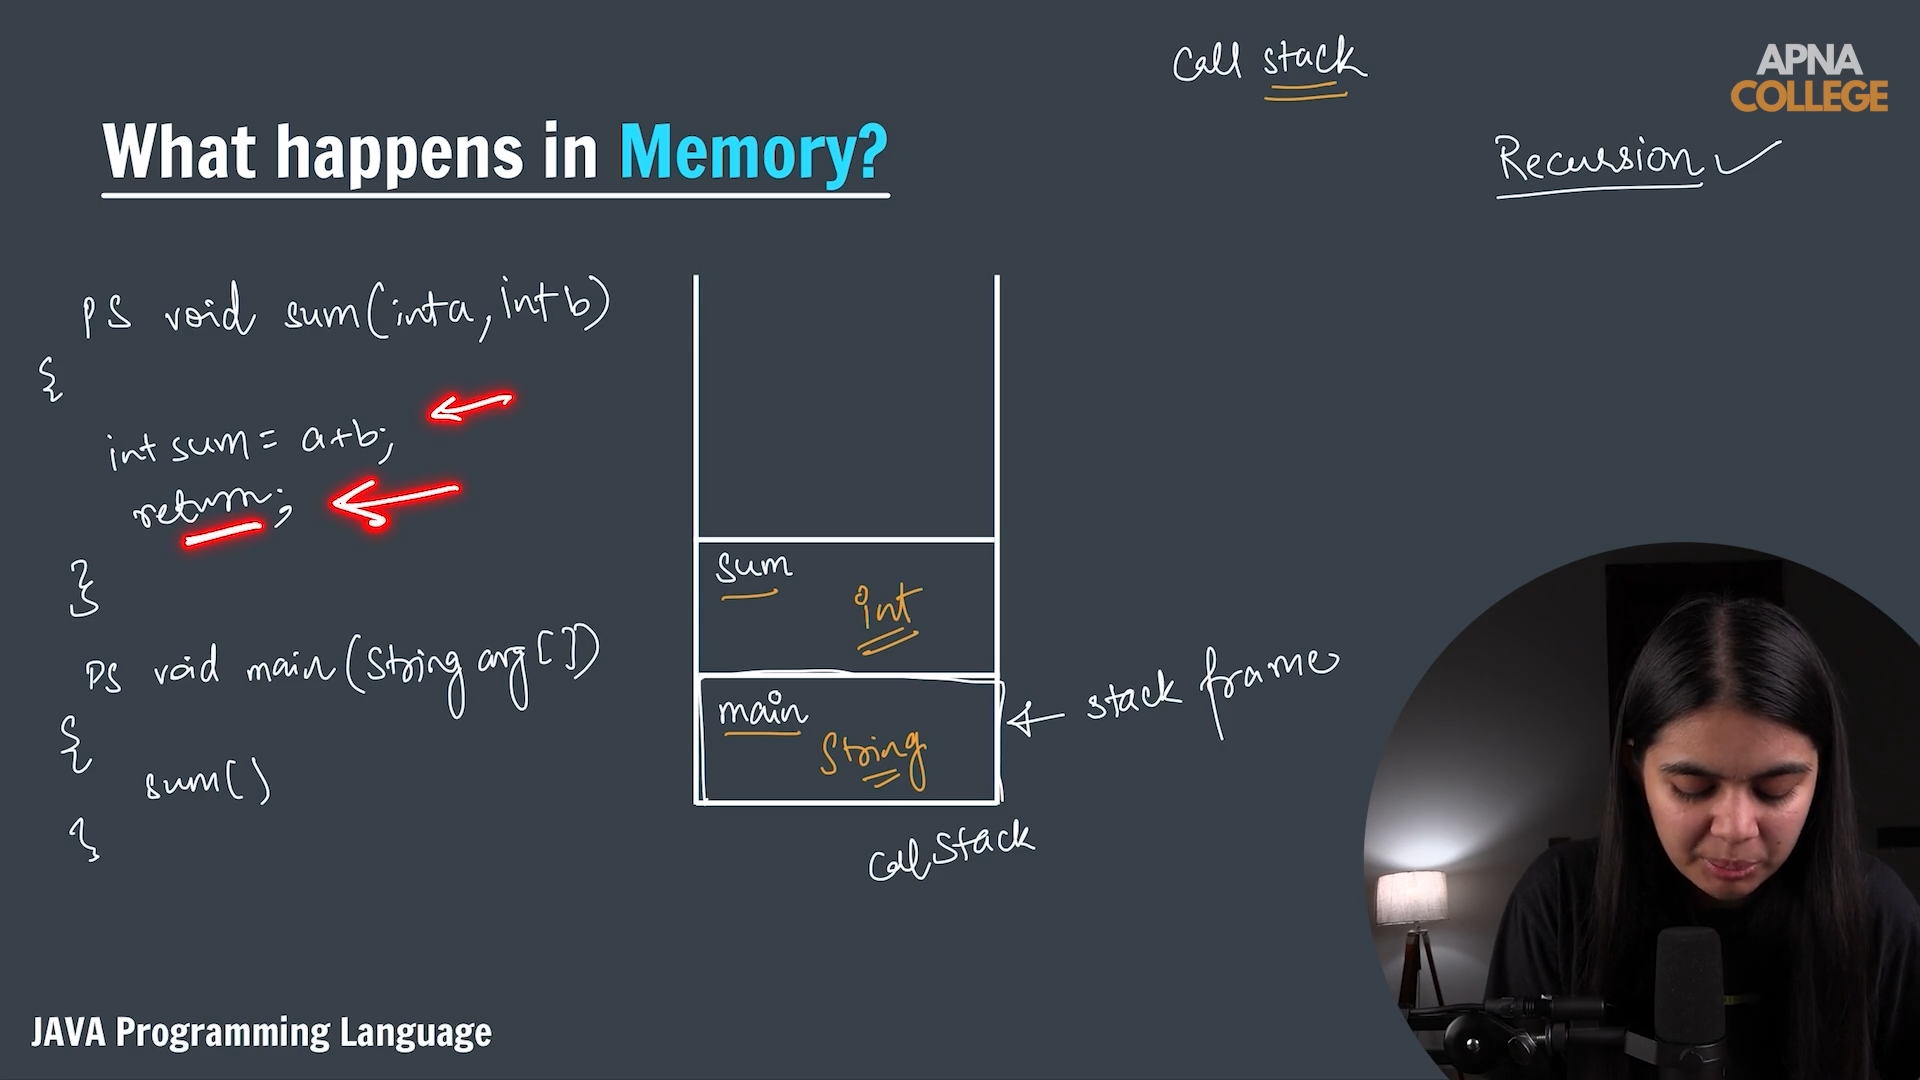 Call stack
APNA
COLLEGE
What happens in Memory?
Recursion ✓
PS void sum(int a, int b)
{
int sum = a+b;
return;
}
PS void main(String arg[])
{
sum()
}
sum
int
main
String
stack frame
Call Stack
JAVA Programming Language